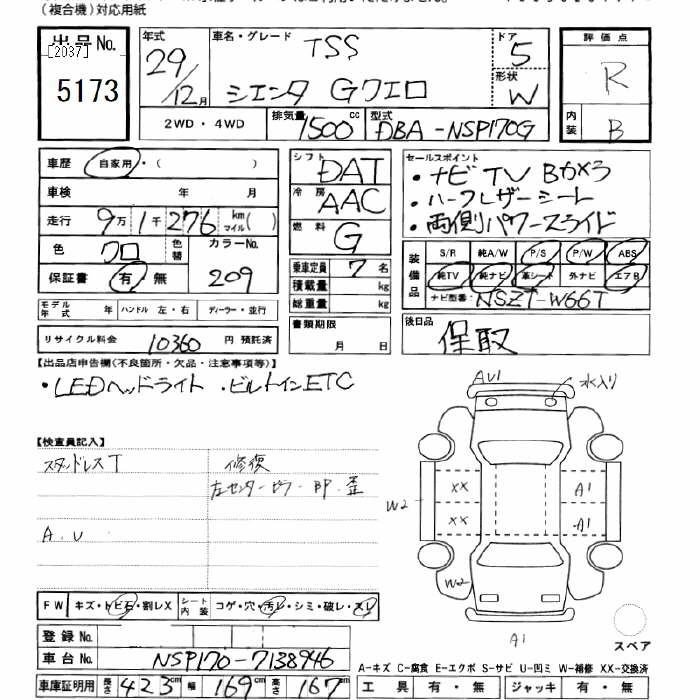 （複合機）対応用紙
出品No.
[2037]
5173
年式
29/12月
車名・グレード
TSS
シエンタ Gクエロ
ドア
5
形状
W
評価点
R
内装
B
2WD・4WD
排気量 1500cc
型式 DBA-NSP170G
車歴 自家用・（ ）
車検 年 月
走行 9万1千276 km マイル( )
色 クロ
色替
カラーNo. 209
保証書 有・無
シフト DAT
冷房 AAC
燃料 G
乗車定員 7名
積載量 kg
総重量 kg
セールスポイント
・ナビ TV Bカメラ
・ハーフレザーシート
・両側パワースライド
装備品
S/R 純A/W P/S P/W ABS
純TV 純ナビ 革シート 外ナビ エアB
ナビ型番: NSZT-W66T
モデル年式 年 ハンドル 左・右 ディーラー・並行
書類期限 月 日
後日品
保取
リサイクル料金 10360 円 預託済
【出品店申告欄（不良箇所・欠品・注意事項等）】
・LEDヘッドライト ・ビルトインETC
【検査員記入】
スタッドレスT
修復
左センターピラー BP 歪
A.U
AU1
水入り
XX
A1
W2
XX
A1
W2
A1
FW キズ・トビ石・割レX
シート内装 コゲ・穴・汚レ・シミ・破レ・スレ
スペア
登録No.
車台No. NSP170-7138946
車庫証明用 長さ 423cm 幅 169cm 高さ 167cm
A-キズ C-腐食 E-エクボ S-サビ U-凹ミ W-補修 XX-交換済
工具 有・無 ジャッキ 有・無